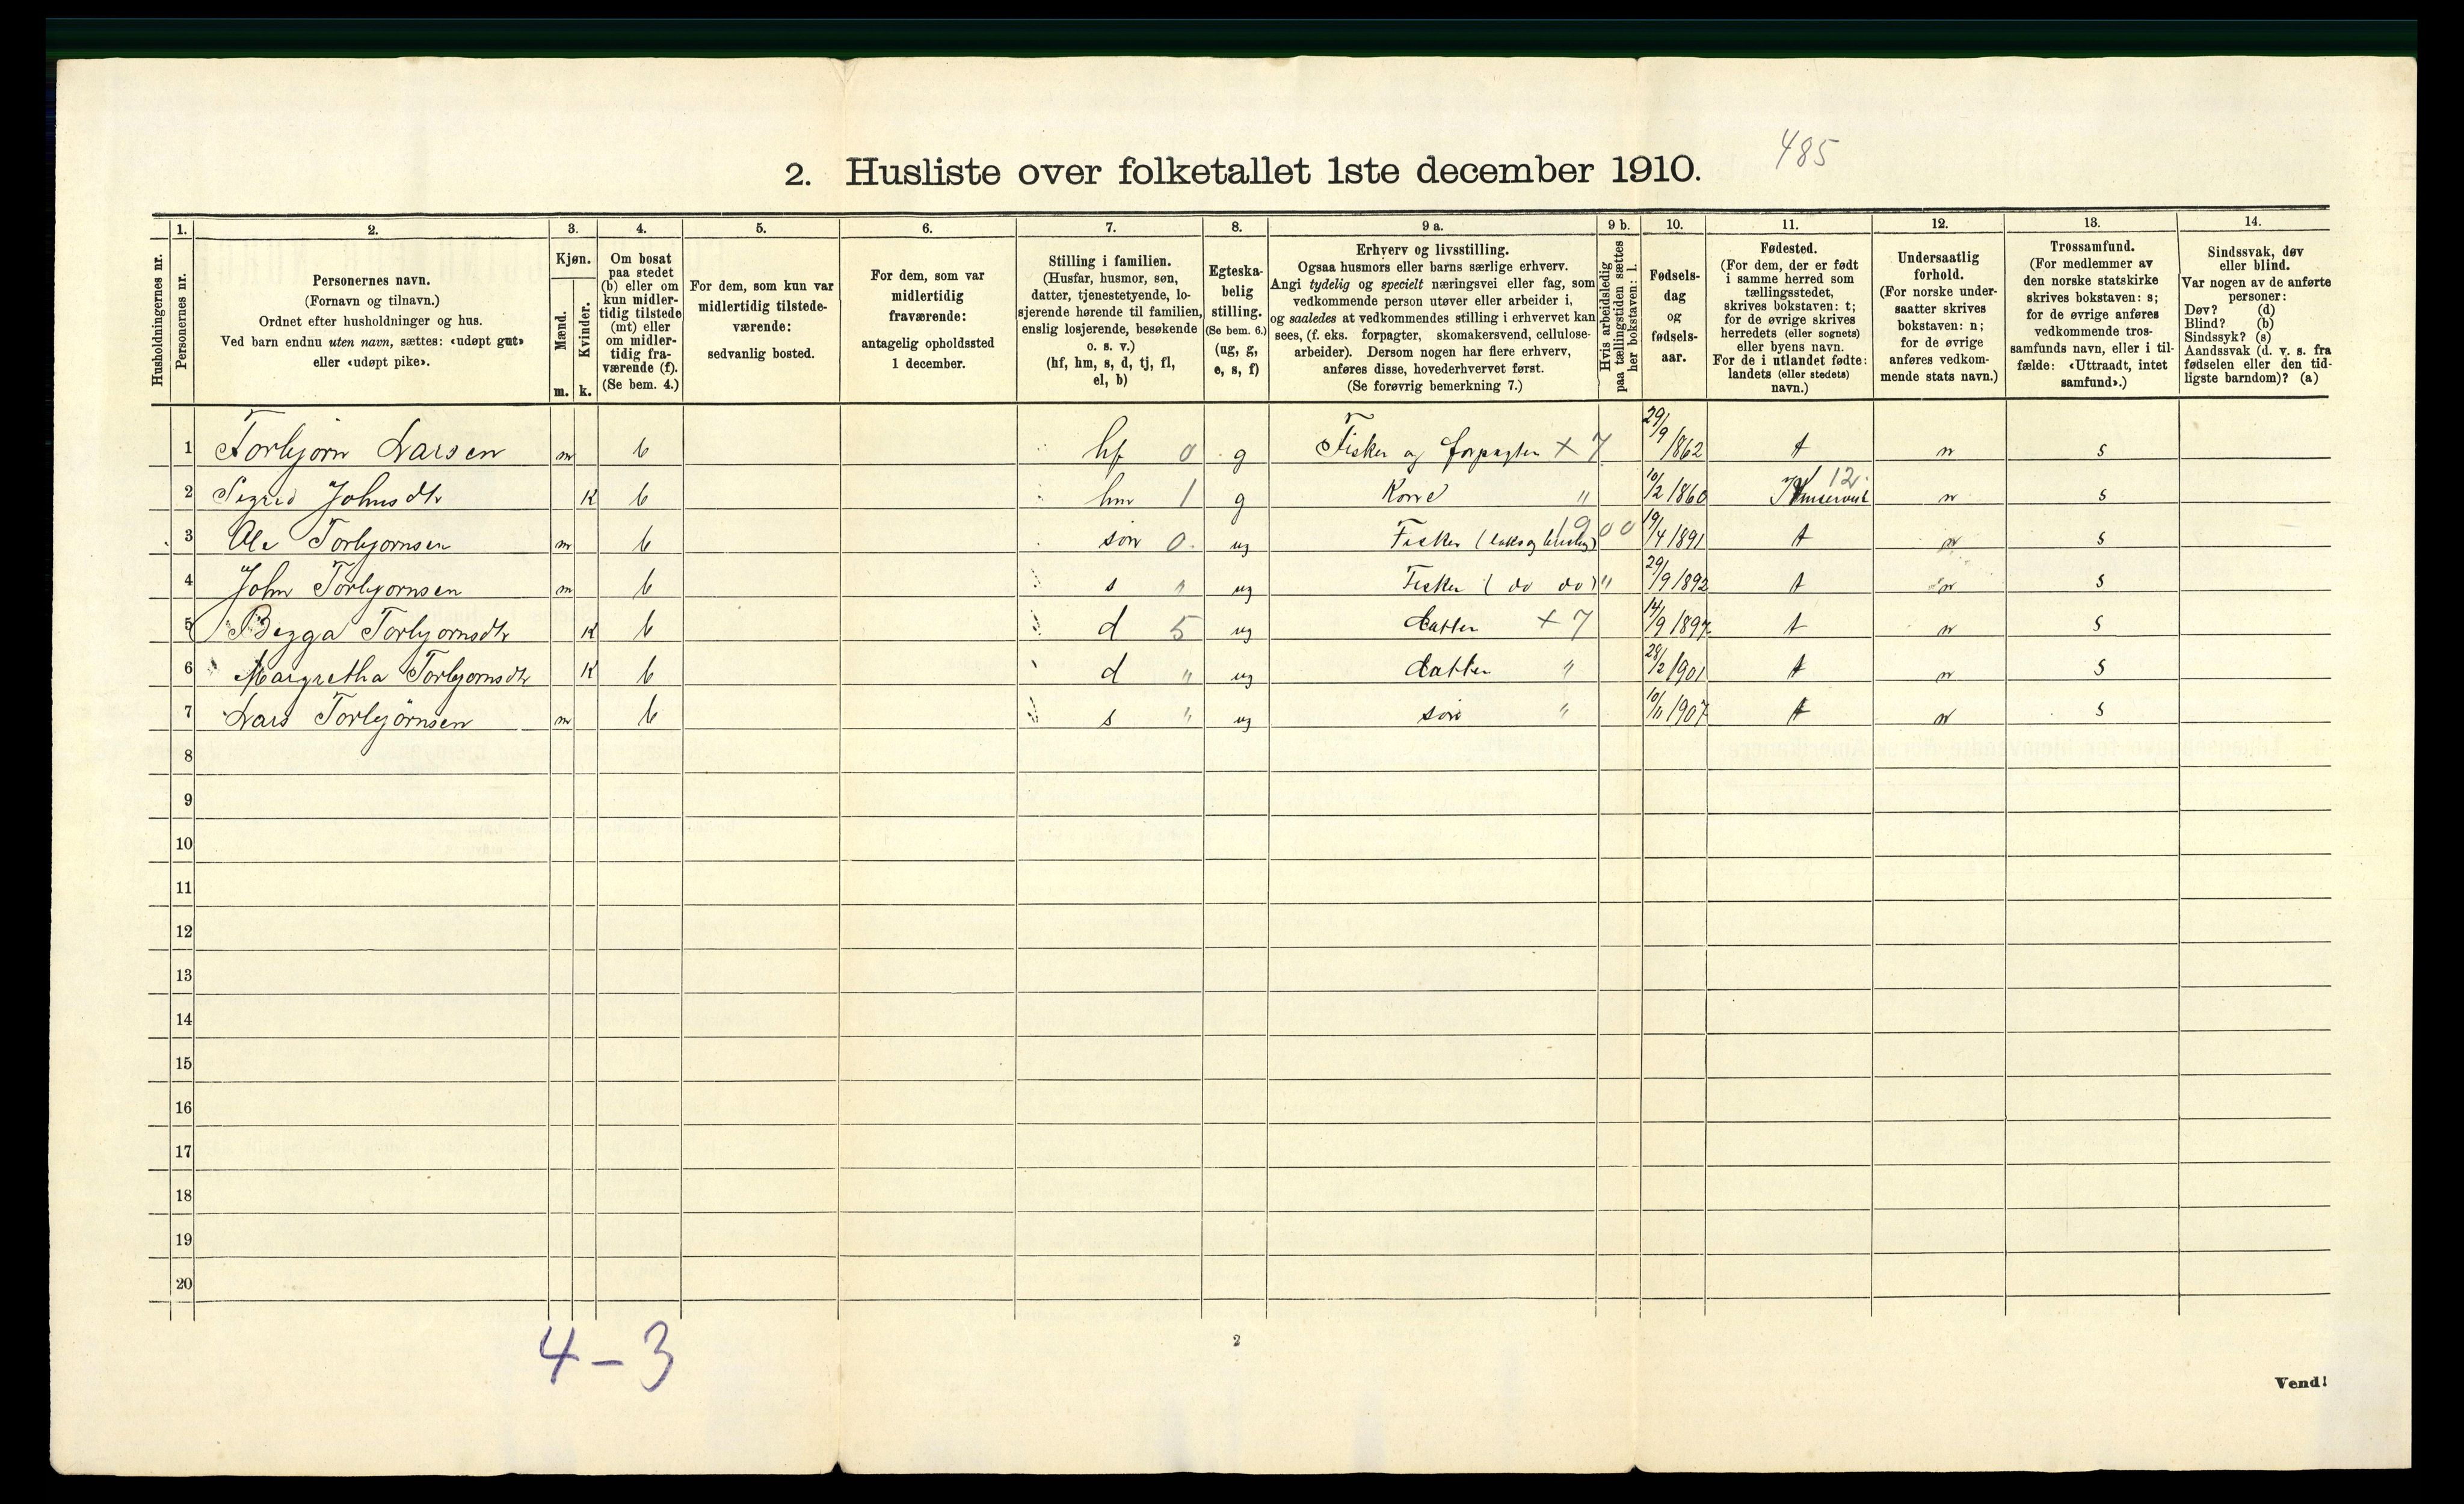 485
2. Husliste over folketallet 1ste december 1910.
Husholdningernes nr.
1.
Personernes nr.
2.
Personernes navn.
(Fornavn og tilnavn.)
Ordnet efter husholdninger og hus.
Ved barn endnu uten navn, sættes: «udøpt gut»
eller «udøpt pike».
3.
Kjøn.
Mænd.
m.
Kvinder.
k.
4.
Om bosat
paa stedet
(b) eller om
kun midler-
tidig tilstede
(mt) eller
om midler-
tidig fra-
værende (f).
(Se bem. 4.)
5.
For dem, som kun var
midlertidig tilstede-
værende:
sedvanlig bosted.
6.
For dem, som var
midlertidig
fraværende:
antagelig opholdssted
1 december.
7.
Stilling i familien.
(Husfar, husmor, søn,
datter, tjenestetyende, lo-
sjerende hørende til familien,
enslig losjerende, besøkende
o. s. v.)
(hf, hm, s, d, tj, fl,
el, b)
8.
Egteska-
belig
stilling.
(Se bem. 6.)
(ug, g,
e, s, f)
9 a.
Erhverv og livsstilling.
Ogsaa husmors eller barns særlige erhverv.
Angi tydelig og specielt næringsvei eller fag, som
vedkommende person utøver eller arbeider i,
og saaledes at vedkommendes stilling i erhvervet kan
sees, (f. eks. forpagter, skomakersvend, cellulose-
arbeider). Dersom nogen har flere erhverv,
anføres disse, hovederhvervet først.
(Se forøvrig bemerkning 7.)
9 b.
Hvis arbeidsledig
paa tællingstiden sættes
her bokstaven: l.
10.
Fødsels-
dag
og
fødsels-
aar.
11.
Fødested.
(For dem, der er født
i samme herred som
tællingsstedet,
skrives bokstaven: t;
for de øvrige skrives
herredets (eller sognets)
eller byens navn.
For de i utlandet fødte:
landets (eller stedets)
navn.)
12.
Undersaatlig
forhold.
(For norske under-
saatter skrives
bokstaven: n;
for de øvrige
anføres vedkom-
mende stats navn.)
13.
Trossamfund.
(For medlemmer av
den norske statskirke
skrives bokstaven: s;
for de øvrige anføres
vedkommende tros-
samfunds navn, eller i til-
fælde: «Uttraadt, intet
samfund».)
14.
Sindssvak, døv
eller blind.
Var nogen av de anførte
personer:
Døv? (d)
Blind? (b)
Sindssyk? (s)
Aandssvak (d. v. s. fra
fødselen eller den tid-
ligste barndom)? (a)
1 Torbjørn Larsen m b hf 0 g Fisker og forpagter x 7 29/9 1862 t n s
2 Sigrid Johnsdtr K b hm 1 g Kone " 10/2 1860 12 n s
3 Ole Torbjørnsen m b søn 0 ug Fisker 19/4 1891 t n s
4 John Torbjørnsen m b s " ug Fisker (do do) " 29/9 1892 t n s
5 Torbjørnsdtr K b d 5 ug datter x 7 14/9 1897 t n s
6 Margretha Torbjørnsdtr K b d " ug datter " 28/2 1901 t n s
7 Lars Torbjørnsen m b s " ug søn " 10/11 1907 t n s
8
9
10
11
12
13
14
15
16
17
18
19
20
4 - 3
2
Vend!